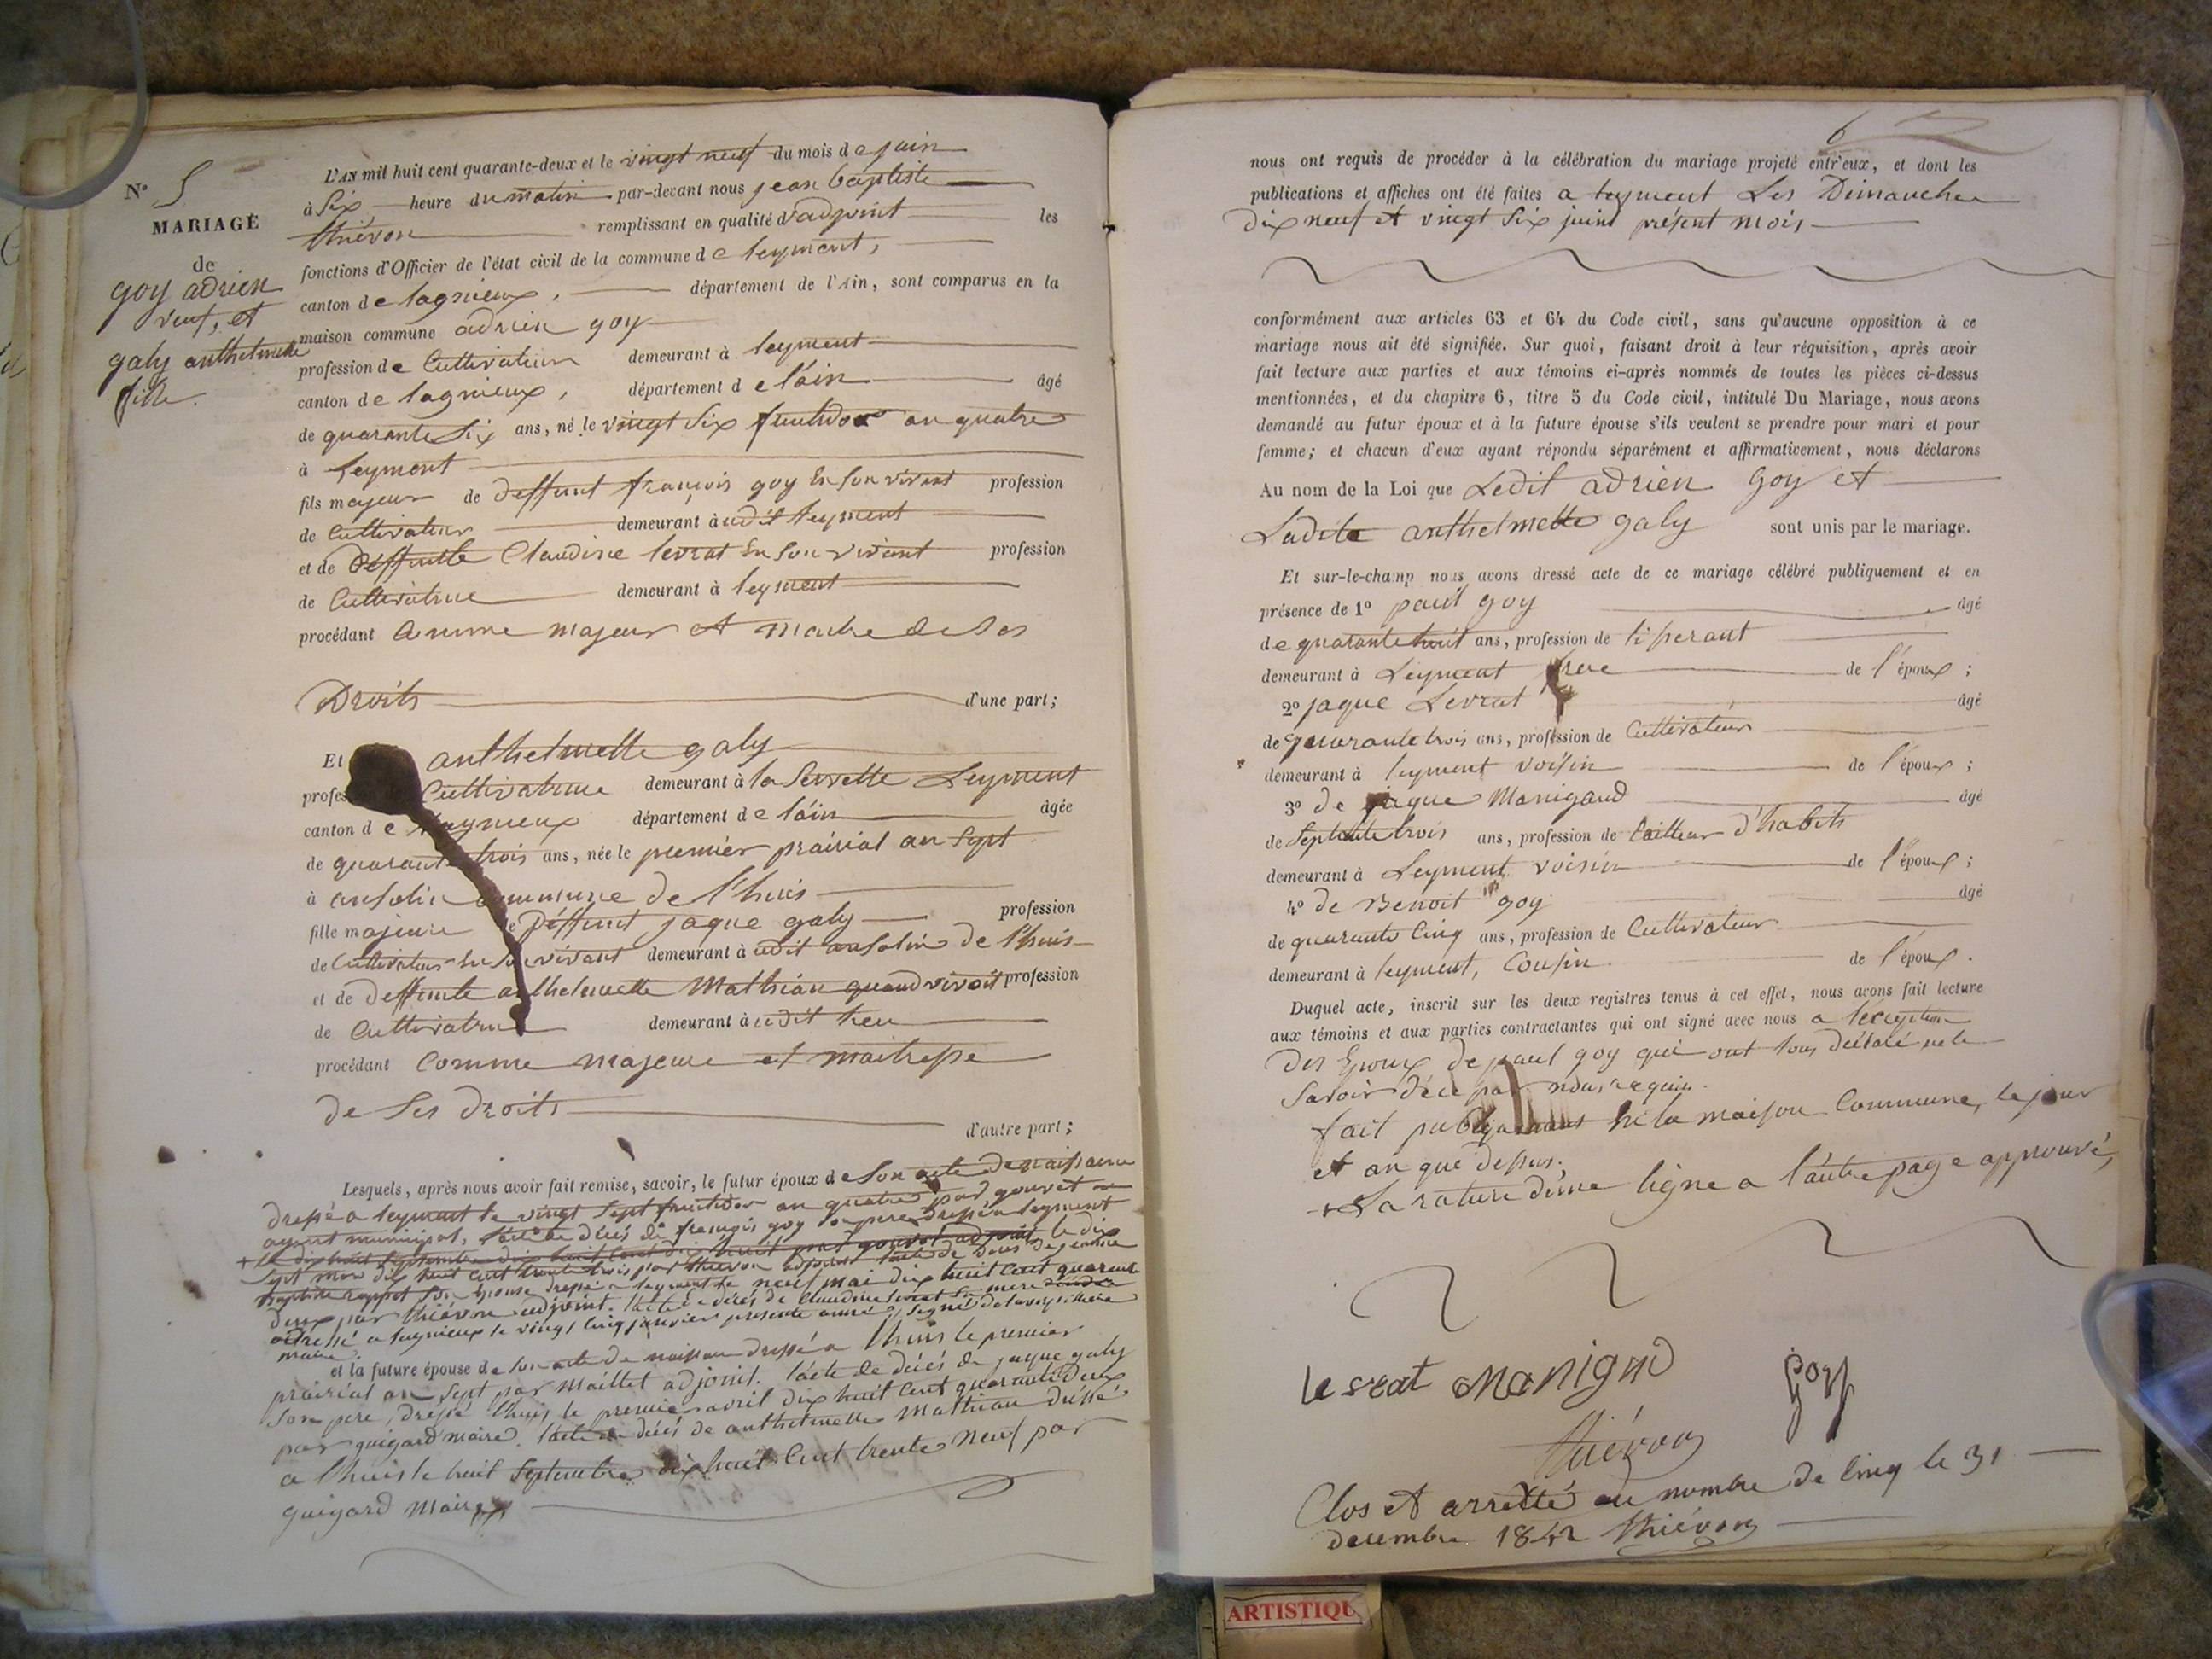 N° 5
MARIAGE
de
goy adrien
veuf, et
galy anthelmette
fille.
L'AN mil huit cent quarante-deux et le vingt neuf du mois de juin
à Six heure du matin par-devant nous jean baptiste
thiévon remplissant en qualité d'adjoint les
fonctions d'Officier de l'état civil de la commune de leyment,
canton de lagnieux, département de l'Ain, sont comparus en la
maison commune adrien goy
profession de Cultivateur demeurant à leyment
canton de lagnieux, département de l'ain âgé
de quarante Six ans, né le vingt Six fructidor an quatre
à Leyment
fils majeur de deffunt françois goy En Son vivant profession
de Cultivateur demeurant à udit leyment
et de deffunte Claudine levrat En Son vivant profession
de Cultivatrice demeurant à leyment
procédant Comme majeur et maitre de Ses
Droits d'une part;
Et anthelmette galy
profes Cultivatrice demeurant à la Servette Leyment
canton de lagnieux département de l'ain âgée
de quarante trois ans, née le premier prairial an Sept
à ansolin commune de l'huis
fille majeure de Déffunt jaque galy profession
de Cultivateur En Son vivant demeurant à udit ansolin de l'huis
et de deffunte anthelmette Mathian quand vivoit profession
de Cultivatrice demeurant à udit lieu
procédant Comme majeure et maitresse
de Ses droits
d'autre part;
Lesquels, après nous avoir fait remise, savoir, le futur époux de Son acte de naissance
dressé a leyment le vingt Sept fructidor an quatre par gouvet
agent municipal, l'acte de décès de françois goy Son pere dressé a leyment
+ le dix huit Septembre dix huit Cent dix huit par gouvet adjoint le dix
Sept mars dix huit Cent trente trois par thiévon adjoint l'acte de décès de jeanne
Son Epouse dressé a leyment le neuf mai dix huit Cent quarante
deux par thiévon adjoint. l'acte de décès de Claudine levrat Sa mere
dressé a lagnieux le vingt Cinq janvier presente année Signé
maire.
et la future épouse de Son acte de naissance dressé a l'huis le premier
prairial an Sept par Maillet adjoint. l'acte de décès de jaque galy
Son pere, dressé l'huis le premier avril dix huit Cent quarante Deux
par guigard maire. l'acte de décès de anthelmette Mathian dressé
a l'huis le huit Septembre dix huit Cent trente Neuf par
guigard Maire
6
nous ont requis de procéder à la célébration du mariage projeté entr'eux, et dont les
publications et affiches ont été faites a leyment Les Dimanche
Dix neuf et vingt Six juin présent mois
conformément aux articles 63 et 64 du Code civil, sans qu'aucune opposition à ce
mariage nous ait été signifiée. Sur quoi, faisant droit à leur réquisition, après avoir
fait lecture aux parties et aux témoins ci-après nommés de toutes les pièces ci-dessus
mentionnées, et du chapitre 6, titre 5 du Code civil, intitulé Du Mariage, nous avons
demandé au futur époux et à la future épouse s'ils veulent se prendre pour mari et pour
femme; et chacun d'eux ayant répondu séparément et affirmativement, nous déclarons
Au nom de la Loi que Ledit adrien Goy et
Ladite anthelmette galy sont unis par le mariage.
Et sur-le-champ nous avons dressé acte de ce mariage célébré publiquement et en
présence de 1° paul goy âgé
de quarante huit ans, profession de tisserant
demeurant à Leyment frere de l'époux;
2° jaque Levrat âgé
de quarante trois ans, profession de Cultivateur
demeurant à leyment voisin de l'époux;
3° de jaque Manigand âgé
de Septante trois ans, profession de tailleur d'habits
demeurant à Leyment voisin de l'époux;
4° de Benoit goy âgé
de quarante Cinq ans, profession de Cultivateur
demeurant à leyment, Cousin de l'époux.
Duquel acte, inscrit sur les deux registres tenus à cet effet, nous avons fait lecture
aux témoins et aux parties contractantes qui ont signé avec nous a l'exception
Des Epoux de paul goy qui ont tous déclaré ne le
Savoir de ce par nous requis.
fait publiquement En la maison Commune, le jour
et an que dessus.
+ La rature d'une ligne a l'autre page approuvé,
levrat Manignd Goy
thiévon
Clos et arretté au nombre de Cinq le 31
decembre 1842 thiévon
ARTISTIQU